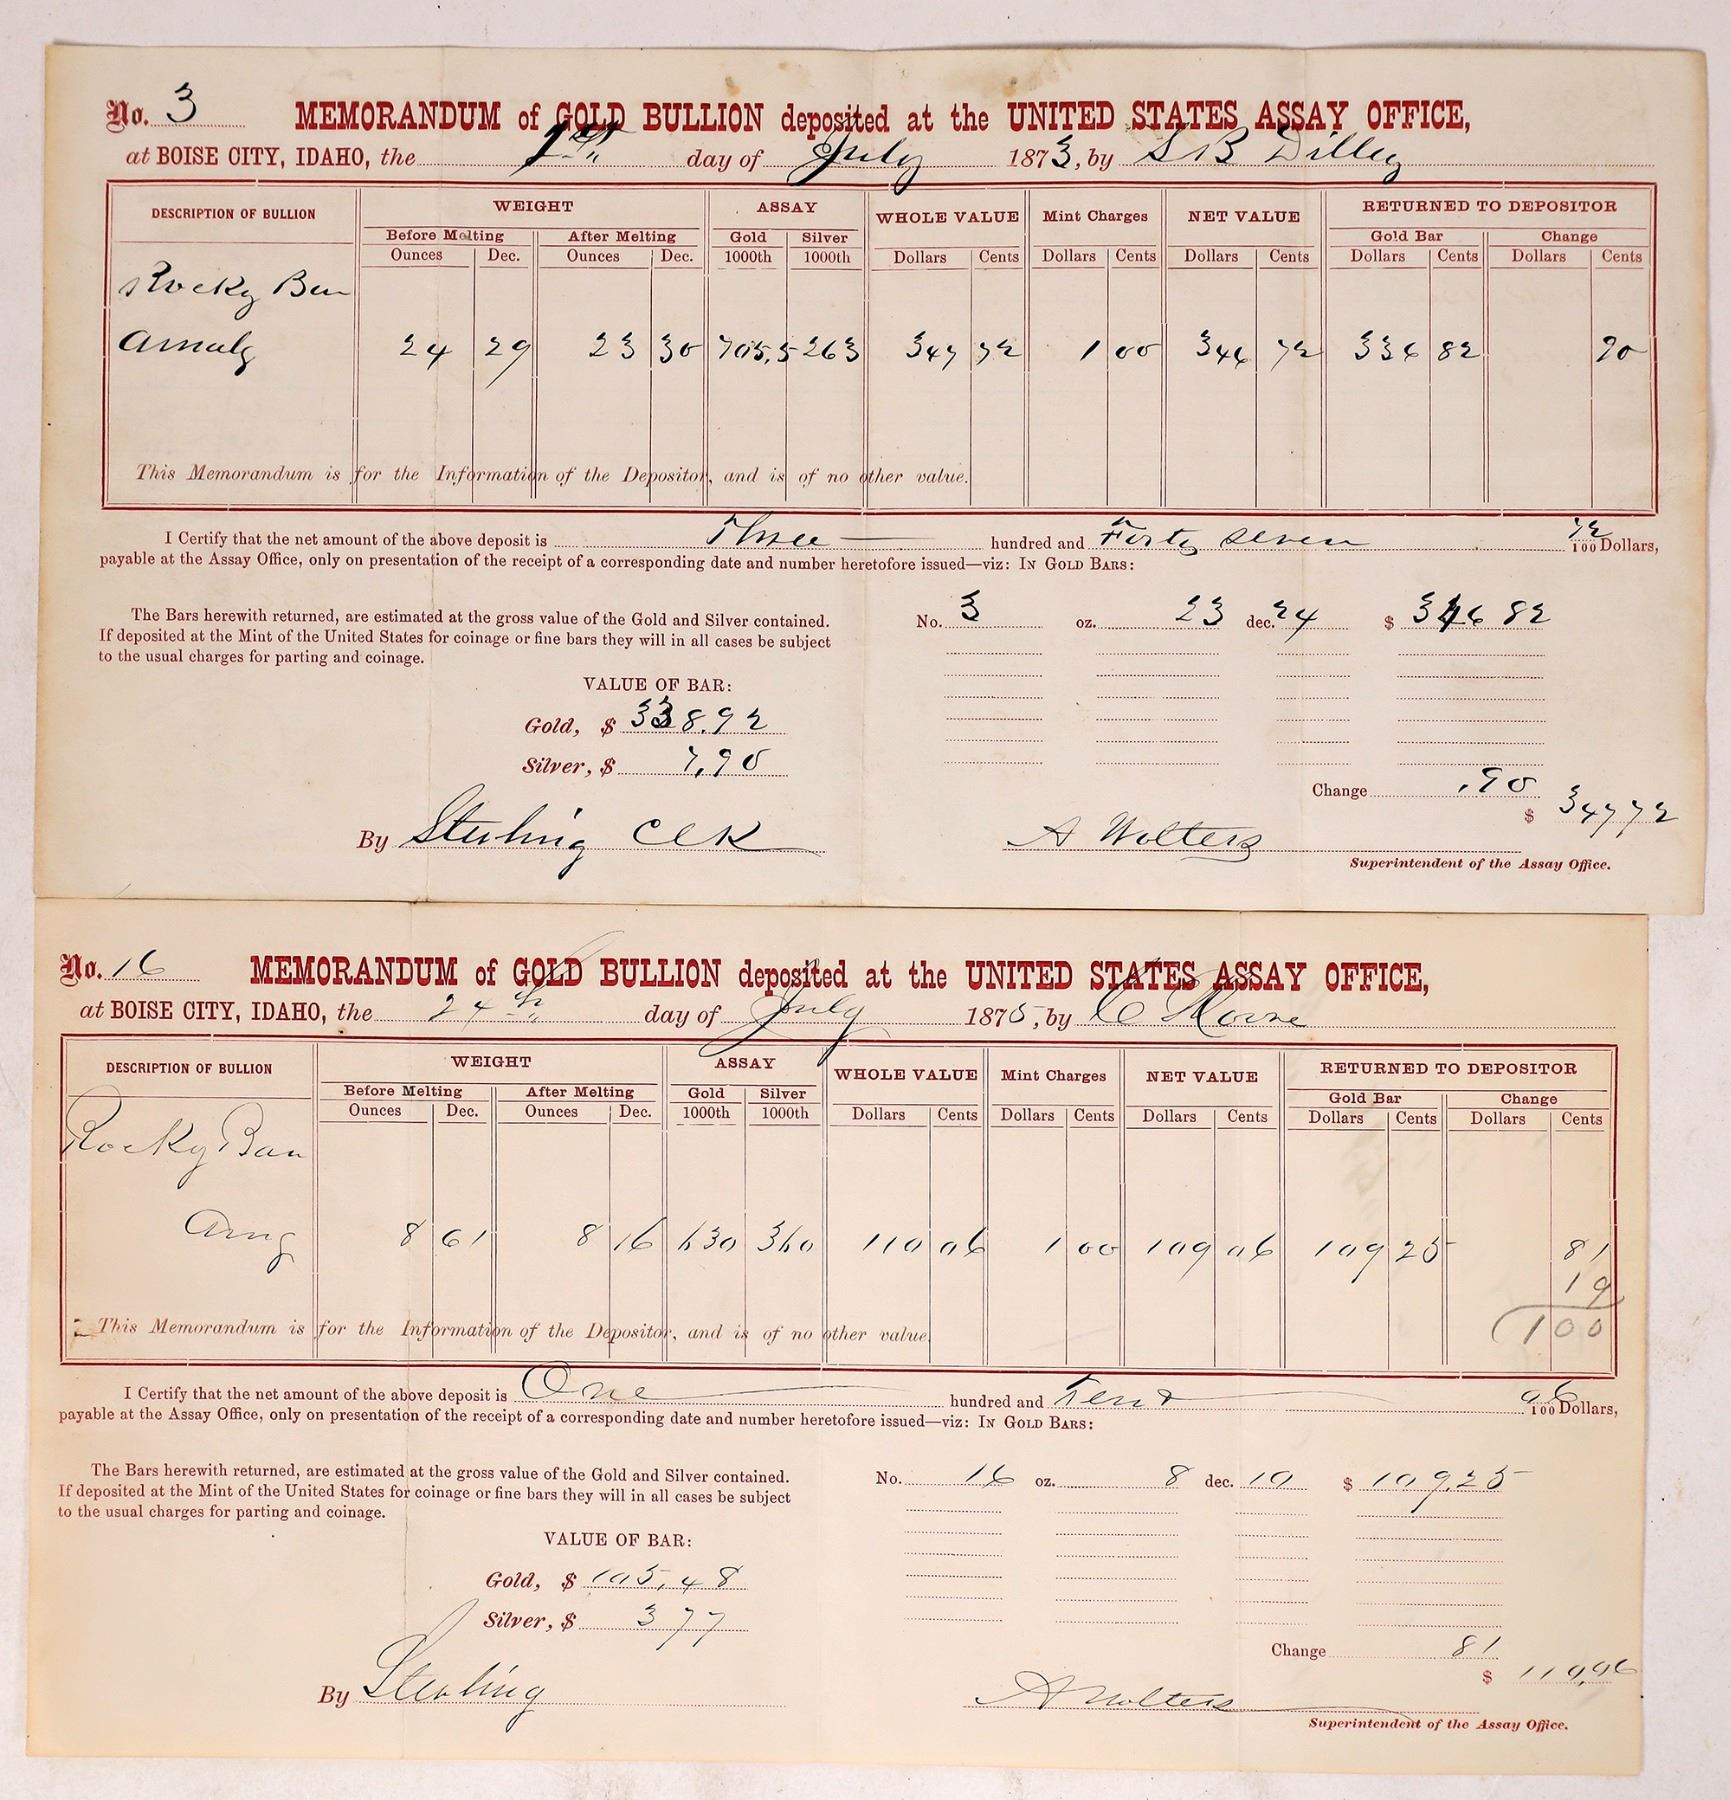 No. 3 MEMORANDUM of GOLD BULLION deposited at the UNITED STATES ASSAY OFFICE,
at BOISE CITY, IDAHO, the 1st day of July 1873, by S B Dilley
DESCRIPTION OF BULLION WEIGHT ASSAY WHOLE VALUE Mint Charges NET VALUE RETURNED TO DEPOSITOR
Before Melting After Melting Gold Silver Gold Bar Change
Ounces Dec. Ounces Dec. 1000th 1000th Dollars Cents Dollars Cents Dollars Cents Dollars Cents Dollars Cents
Rocky Bar
Amalg 24 29 23 30 705.5 263 347 72 1 00 346 72 336 82 90
This Memorandum is for the Information of the Depositor, and is of no other value.
I Certify that the net amount of the above deposit is Three hundred and Forty seven 72/100 Dollars,
payable at the Assay Office, only on presentation of the receipt of a corresponding date and number heretofore issued—viz: IN GOLD BARS:
The Bars herewith returned, are estimated at the gross value of the Gold and Silver contained.
If deposited at the Mint of the United States for coinage or fine bars they will in all cases be subject
to the usual charges for parting and coinage.
No. 3 oz. 23 dec. 24 $ 346 82
VALUE OF BAR:
Gold, $ 338.92
Silver, $ 7,90
Change .90
$ 347 72
By Sterling Clk A Wolters
Superintendent of the Assay Office.
No. 16 MEMORANDUM of GOLD BULLION deposited at the UNITED STATES ASSAY OFFICE,
at BOISE CITY, IDAHO, the 24th day of July 1875, by C Moore
DESCRIPTION OF BULLION WEIGHT ASSAY WHOLE VALUE Mint Charges NET VALUE RETURNED TO DEPOSITOR
Before Melting After Melting Gold Silver Gold Bar Change
Ounces Dec. Ounces Dec. 1000th 1000th Dollars Cents Dollars Cents Dollars Cents Dollars Cents Dollars Cents
Rocky Bar
Amg 8 61 8 16 630 360 110 06 1 00 109 06 109 25 81
19
100
This Memorandum is for the Information of the Depositor, and is of no other value.
I Certify that the net amount of the above deposit is One hundred and Ten & 06/100 Dollars,
payable at the Assay Office, only on presentation of the receipt of a corresponding date and number heretofore issued—viz: IN GOLD BARS:
The Bars herewith returned, are estimated at the gross value of the Gold and Silver contained.
If deposited at the Mint of the United States for coinage or fine bars they will in all cases be subject
to the usual charges for parting and coinage.
No. 16 oz. 8 dec. 10 $ 109.25
VALUE OF BAR:
Gold, $ 105.48
Silver, $ 3 77
Change 81
$ 110,06
By Sterling A Wolters
Superintendent of the Assay Office.